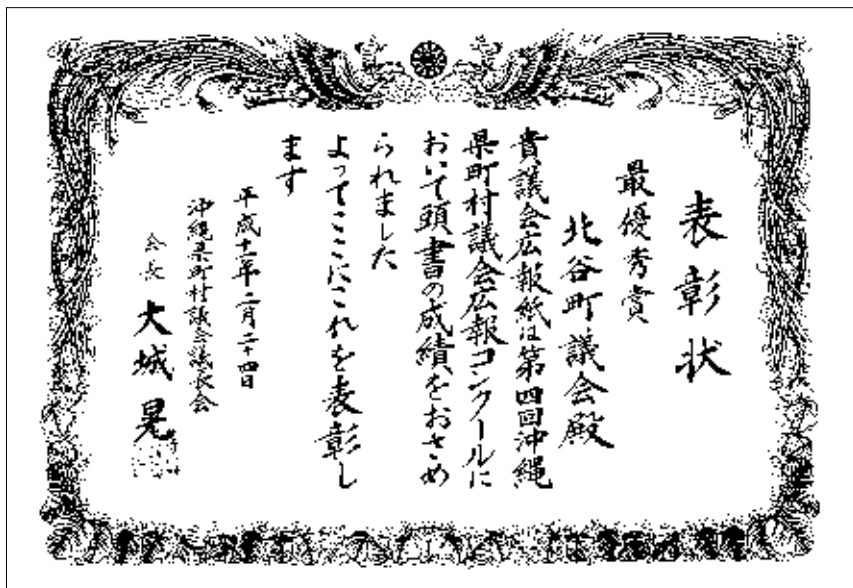 表彰状
最優秀賞
北谷町議会殿
貴議会広報紙は第四回沖縄
県町村議会広報コンクールに
おいて頭書の成績をおさめ
られました
よってここにこれを表彰し
ます
平成十一年二月二十四日
沖縄県町村議会議長会
会長 大城晃